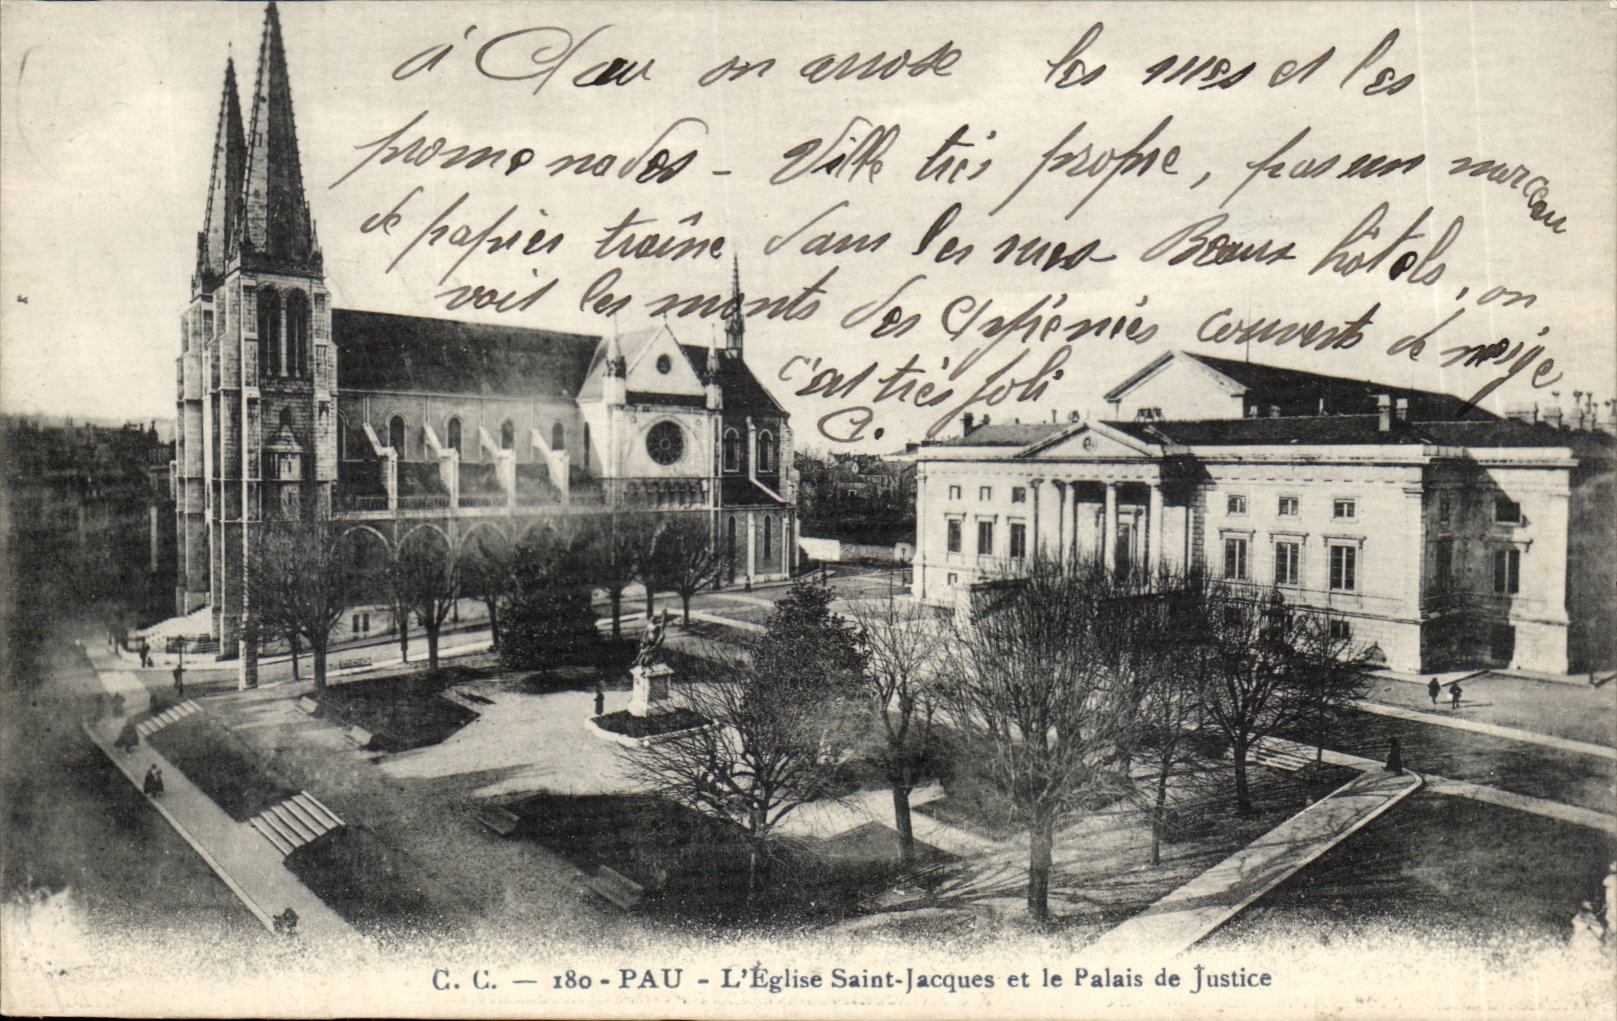 à Pau on arrose les rues et les
promenades - Ville très propre, pas un morceau
de papier traîne dans les rues - Beaux hôtels, on
voit les monts des Pyrénées couverts de neige
c'est très joli
C.
C. C. — 180 - PAU - L'Église Saint-Jacques et le Palais de Justice